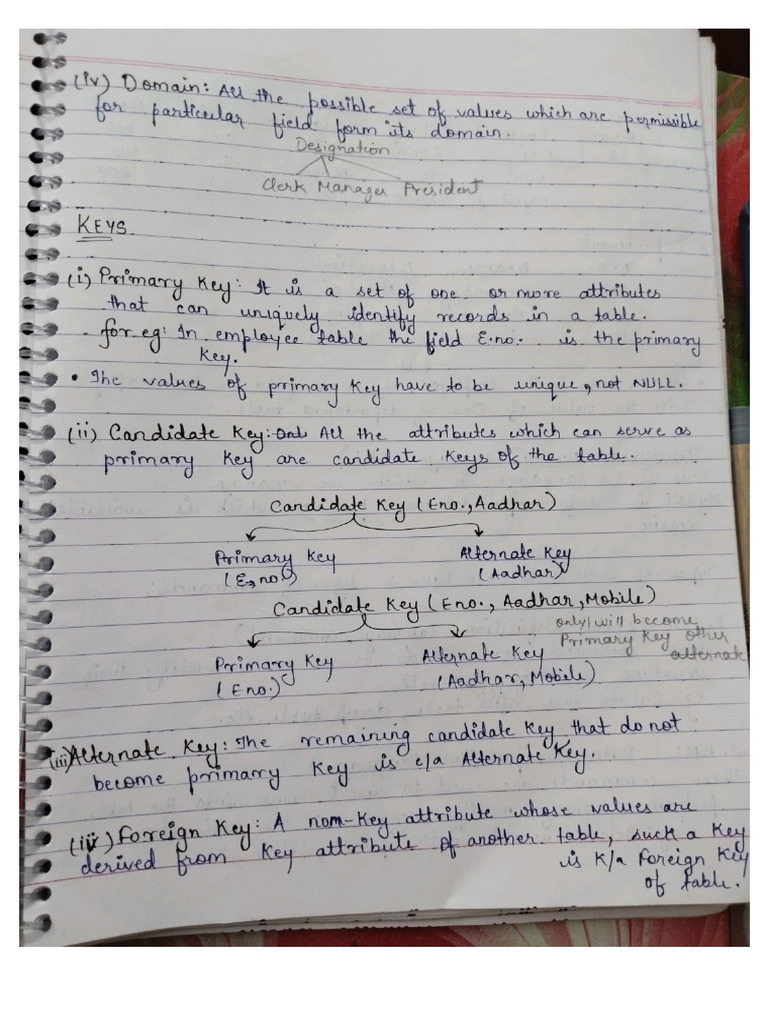 (iv) Domain: All the possible set of values which are permissible
for particular field form its domain.
Designation
Clerk Manager President
KEYS
(i) Primary Key: It is a set of one or more attributes
that can uniquely identify records in a table.
for eg: In employee table the field E.no. is the primary
Key.
• The values of primary Key have to be unique, not NULL.
(ii) Candidate Key: All the attributes which can serve as
primary Key are candidate Keys of the table.
Candidate Key (Eno., Aadhar)
Primary Key Alternate Key
(E.no.) (Aadhar)
Candidate Key (Eno., Aadhar, Mobile)
only 1 will become
Primary Key other
alternate
Primary Key Alternate Key
(Eno.) (Aadhar, Mobile)
(iii) Alternate Key: The remaining candidate Key that do not
become primary Key is c/a Alternate Key.
(iv) Foreign Key: A non-Key attribute whose values are
derived from Key attribute of another table, such a Key
is K/a Foreign Key
of table.